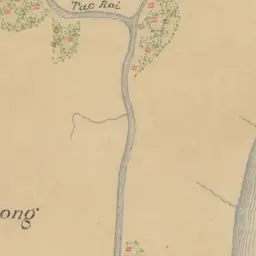 Tac Roi
ong